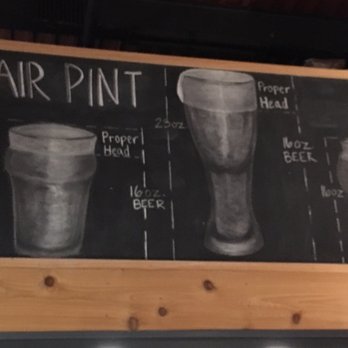 AIR PINT
Proper
Head
16oz.
BEER
23oz
Proper
Head
16oz
BEER
16oz